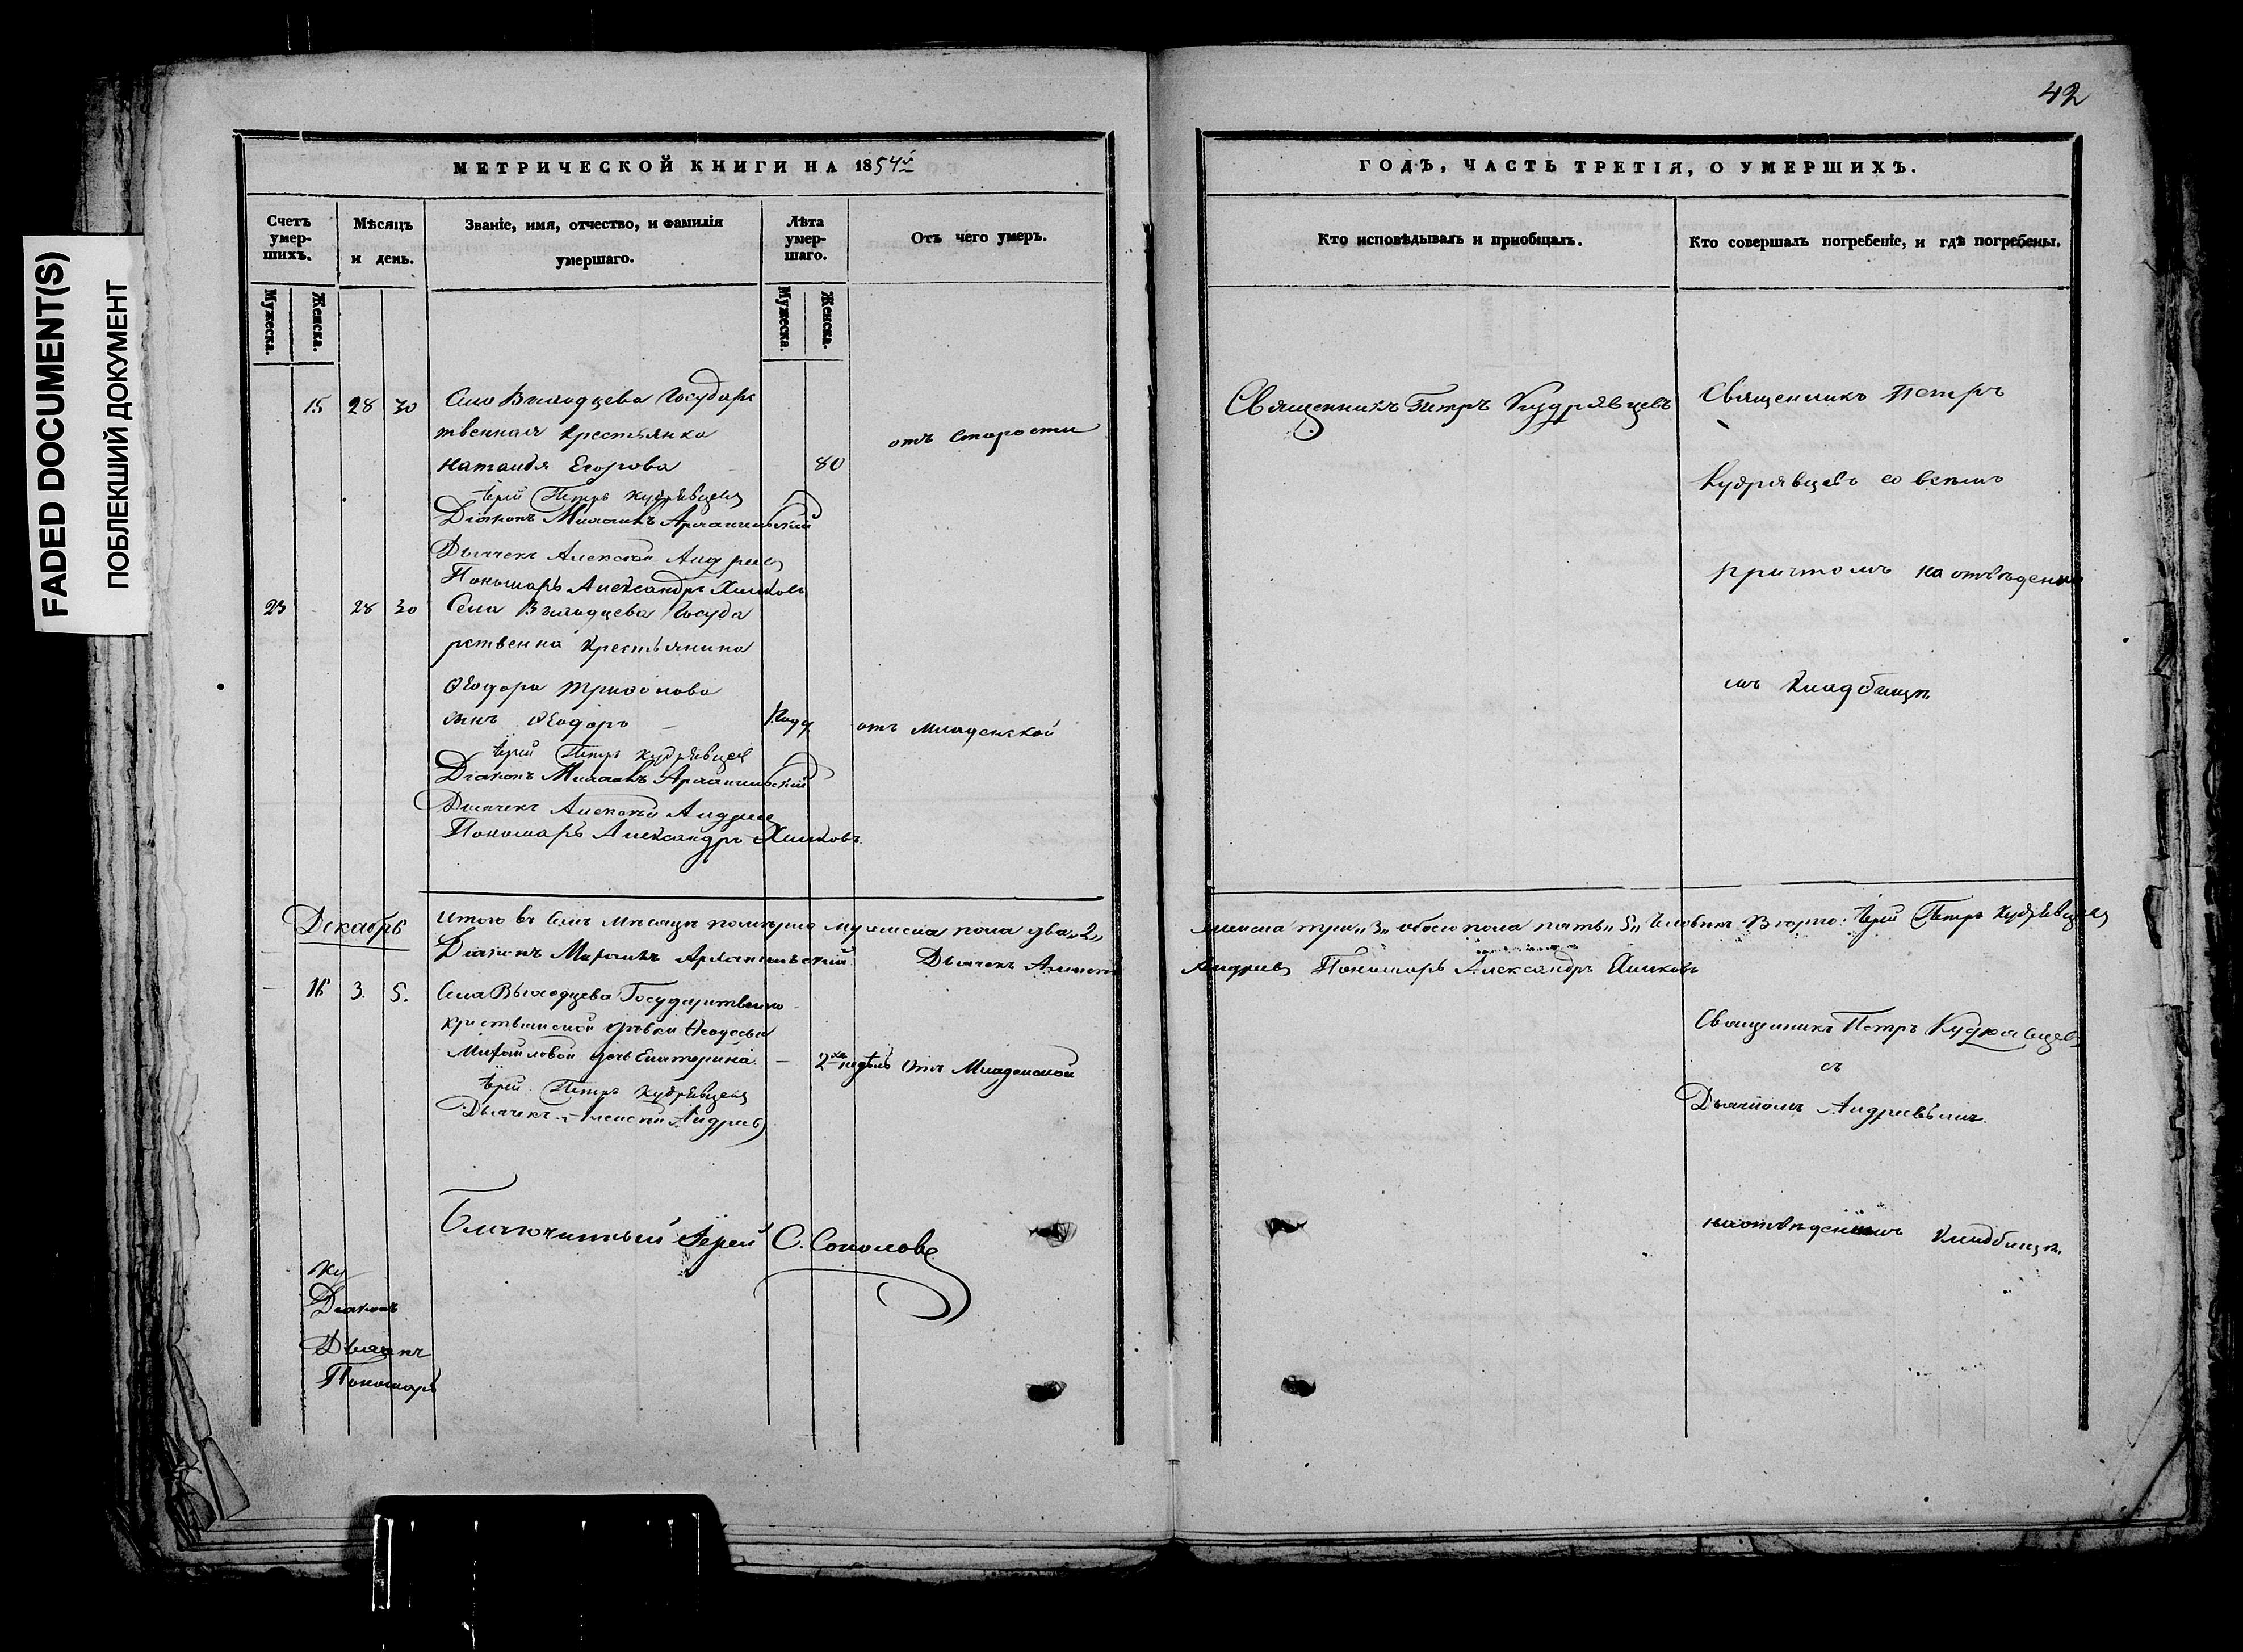 FADED DOCUMENT(S)
ПОБЛЕКШИЙ ДОКУМЕНТ
42
МЕТРИЧЕСКОЙ КНИГИ НА 1854й
Счетъ умер-шихъ.
Мужеска.
Женска.
Мѣсяцъ и день.
Званіе, имя, отчество, и фамилія
умершаго.
Лѣта умер-шаго.
Мужеска.
Женска.
Отъ чего умеръ.
15 28 30 Села Выходцева Государс
твенная Крестьянка
Наталья Егорова 80
отъ старости
Іерей Петръ Кудрявцевъ
Діаконъ Михаилъ Архангельскій
Дьячекъ Алексѣй Андреевъ
Пономарь Александръ Хилковъ
23 28 30 Села Выходцева Госуда
рственна Крестьянина
Ѳеодора Трифонова
сынъ Ѳеодоръ 1 года отъ младенской
Іерей Петръ Кудрявцевъ
Діаконъ Михаилъ Архангельскій
Дьячекъ Алексѣй Андреевъ
Пономарь Александръ Хилковъ
Итого въ семъ Мѣсяцѣ померло мужеска пола два „2„
Декабрь
Діаконъ Михаилъ Архангельскій Дьячекъ Алексѣй
16 3. 5. Села Выходцева Государственно
Крестьянской дѣвки Ѳеодосьи
Михайловой дочь Екатерина 2хъ недѣль Отъ Младенской
Іерей Петръ Кудрявцевъ
Дьячекъ Алексѣй Андреевъ
Благочинный Іерей С. Соколовъ
Діаконъ
Дьячекъ
Пономарь
ГОДЪ, ЧАСТЬ ТРЕТІЯ, О УМЕРШИХЪ.
Кто исповѣдывалъ и пріобщалъ.
Кто совершалъ погребеніе, и гдѣ погребены.
Священникъ Петръ Кудрявцевъ
Священникъ Петръ
Кудрявцевъ со всемъ
причтомъ на отведенно
мъ Кладбищѣ
женска три „3„ обоего пола пять „5„ человѣкъ Іерей Петръ Кудрявцевъ
Андреевъ Пономарь Александръ Хилковъ
Священникъ Петръ Кудрявцевъ
съ
Дьячкомъ Андреевымъ
на отведенномъ Кладбищѣ